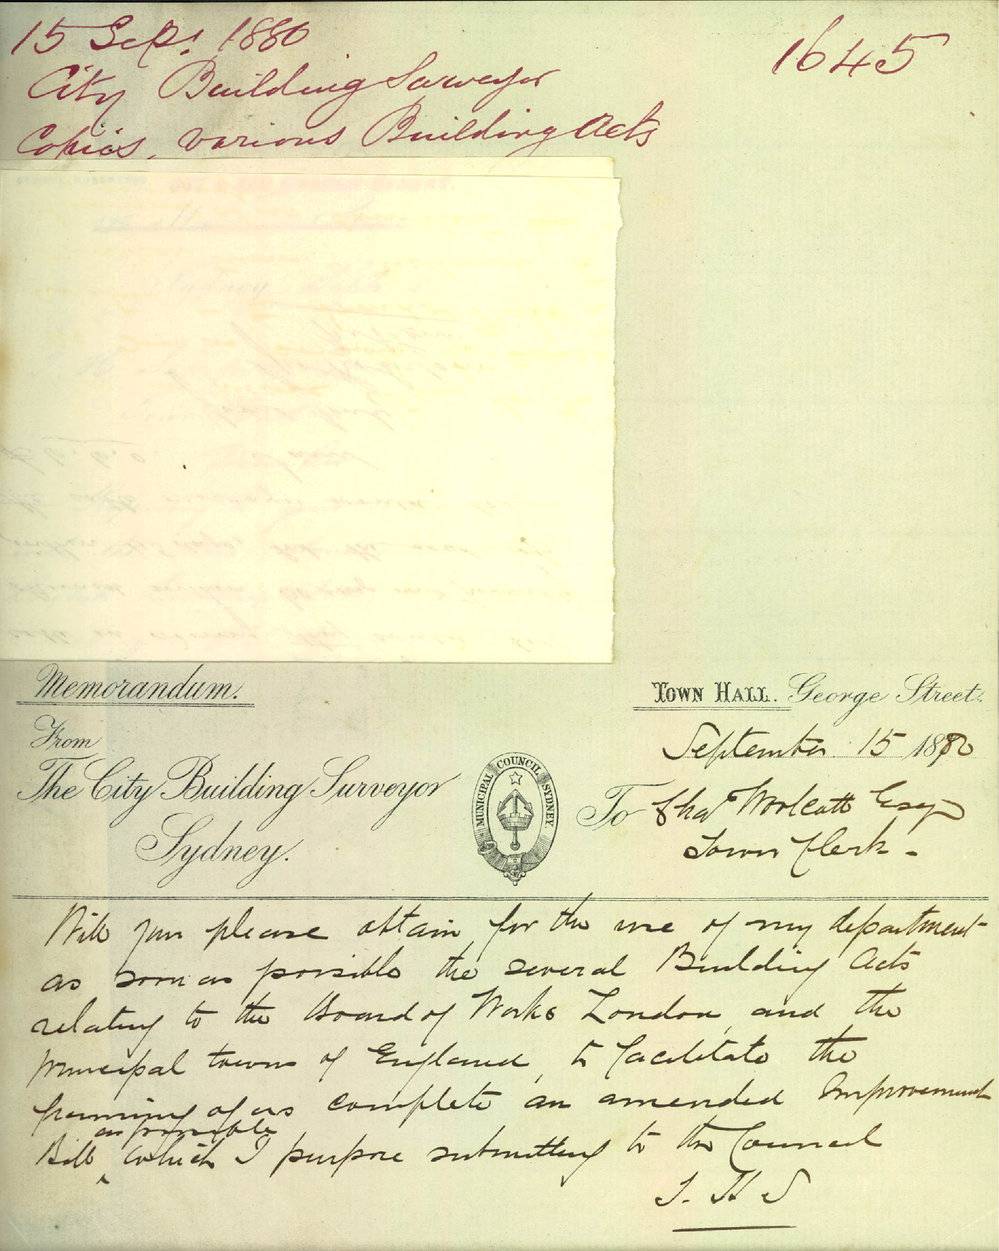 15 Sept. 1880
1645
City Building Surveyor
Copies, various Building Acts
Memorandum.
TOWN HALL. George Street.
From
September 15 1880
The City Building Surveyor
Sydney.
MUNICIPAL COUNCIL SYDNEY
To Chas Woolcott Esqr
Town Clerk -
Will you please obtain for the use of my department
as soon as possible the several Building Acts
relating to the Board of Works London, and the
municipal towns of England, to facilitate the
framing of as complete an amended Improvement
Bill as possible which I purpose submitting to the Council